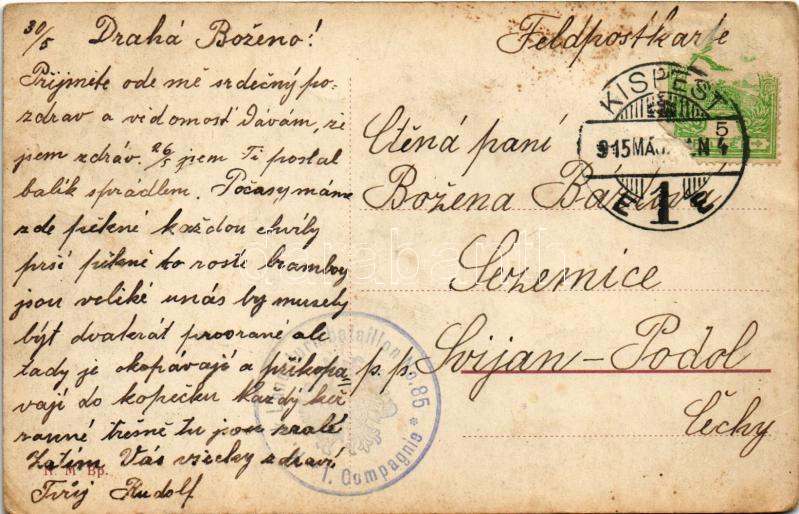 30/5 Drahá Boženo!
Přijměte ode mě srdečný po-
zdrav a vědomost dávám, že
jsem zdráv. 26/5 jsem Ti poslal
balík sprádlem. Počasy máme
zde pěkné každou chvíly
prší pěkně to roste brambory
jsou veliké unás by musely
být dvakrát proorané ale
tady je okopávají a příkopa
vají do kopečku každý keř
ranné třešně tu jsou zralé
Zatím Vás všecky zdraví
Tvůj Rudolf
Feldpostkarte
KISPEST
915 MÁJ. N4
5
E 1 e
Ctěná paní
Božena
Sezemice
p. p. Svijan-Podol
Čechy
bataillon No. 85
1. Compagnie
N. M. Bp.
darabanth.com